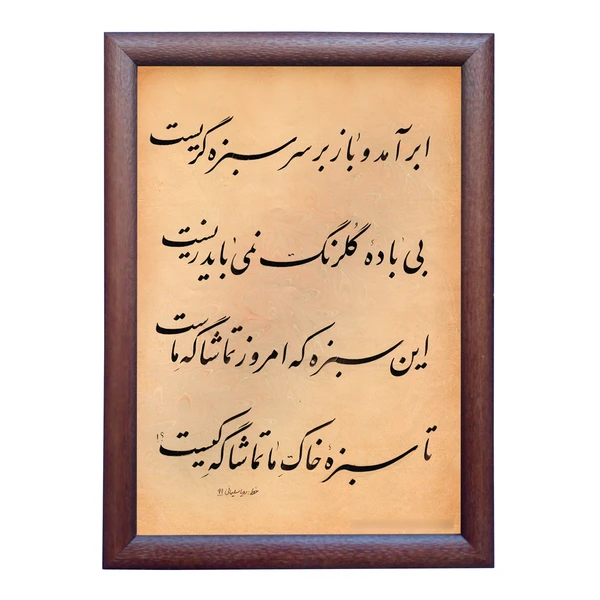 ابر آمد و باز بر سر سبزه گریست
بی بادهٔ گلرنگ نمی باید زیست
این سبزه که امروز تماشاگه ماست
تا سبزهٔ خاکِ ما تماشاگهِ کیست؟!
خط: رویا سلیمانی ۹۹